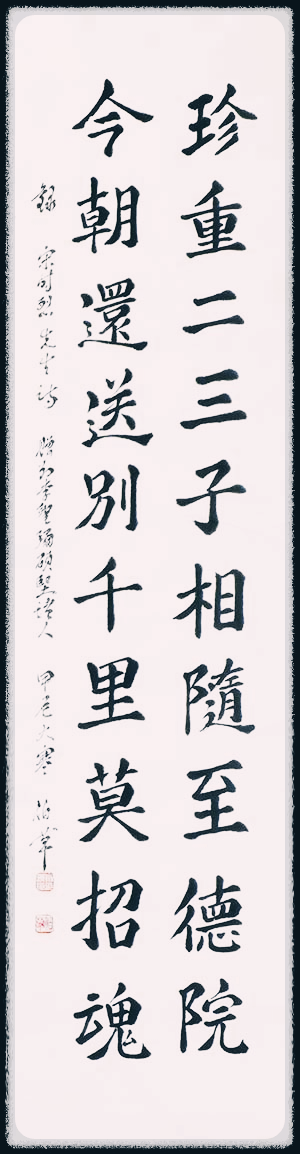 珍重二三子相隨至德院
今朝還送別千里莫招魂
錄 宋時烈先生詩 甲辰大寒